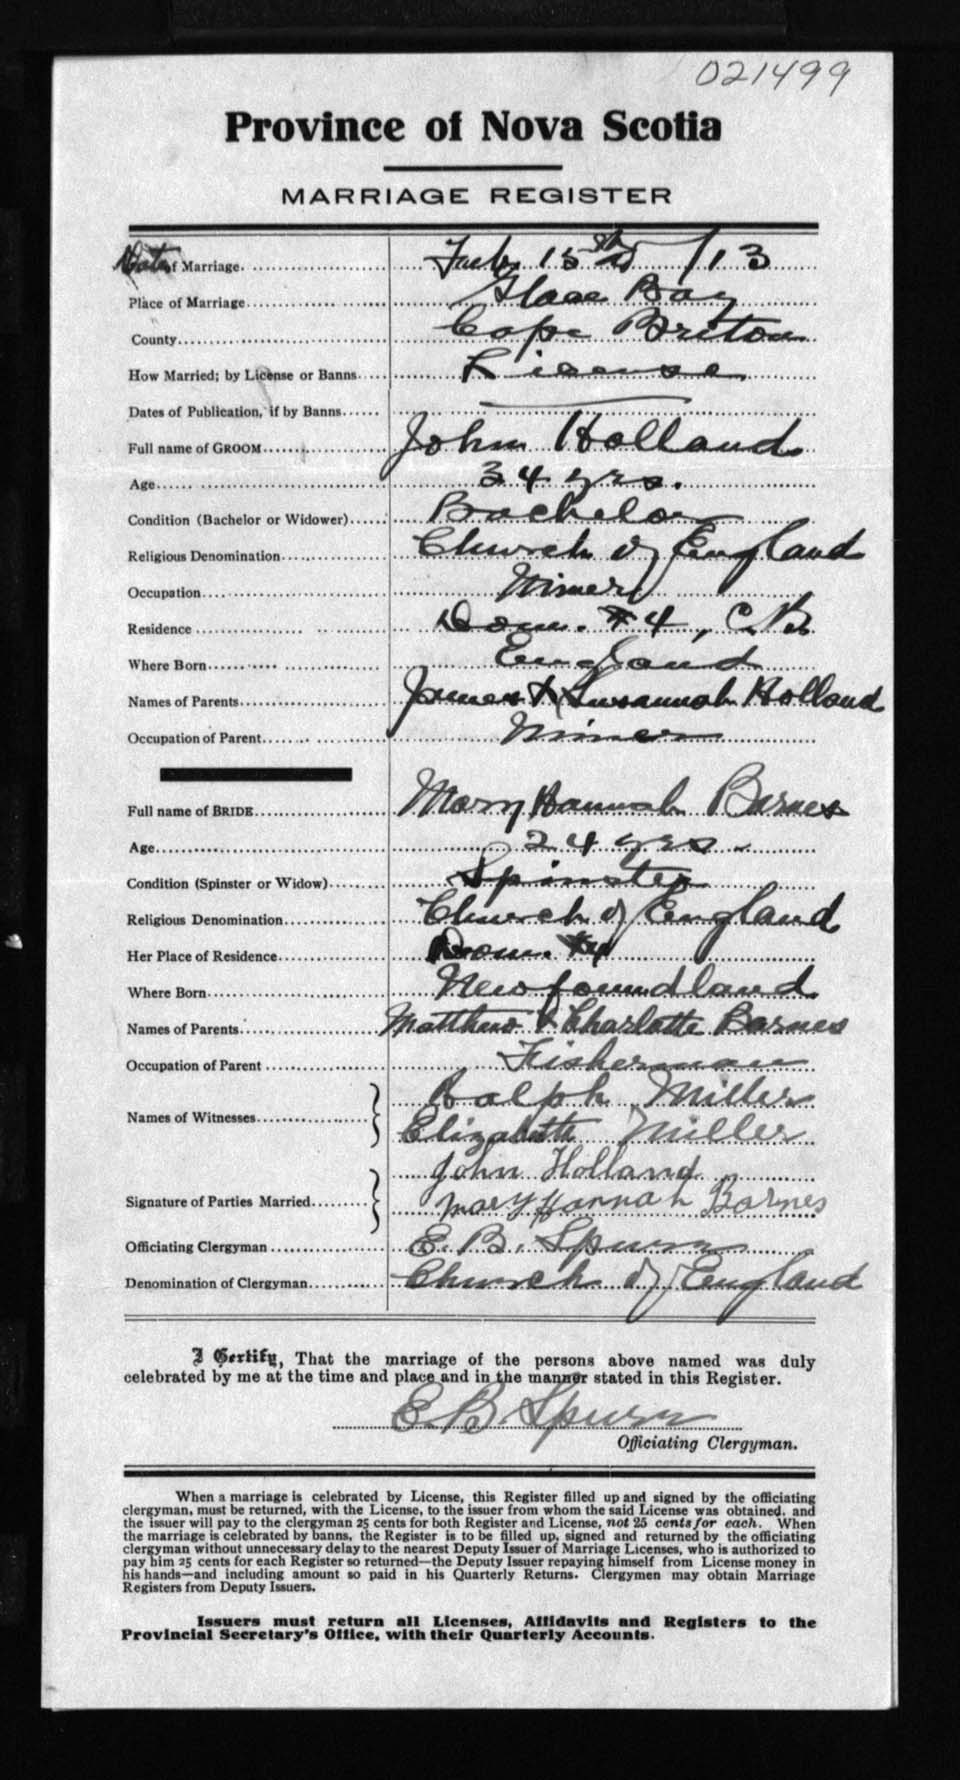 021499
Province of Nova Scotia
MARRIAGE REGISTER
Date of Marriage Feb 15th /13
Place of Marriage Glace Bay
County Cape Breton
How Married; by License or Banns License
Dates of Publication, if by Banns
Full name of GROOM John Holland
Age 34 yrs.
Condition (Bachelor or Widower) Bachelor
Religious Denomination Church of England
Occupation Miner
Residence Dom. #4, C.B.
Where Born England
Names of Parents James & Susannah Holland
Occupation of Parent Miner
Full name of BRIDE Mary Hannah Barnes
Age 24 yrs.
Condition (Spinster or Widow) Spinster
Religious Denomination Church of England
Her Place of Residence Dom. #4
Where Born Newfoundland
Names of Parents Matthew & Charlotte Barnes
Occupation of Parent Fisherman
Names of Witnesses Ralph Miller
Elizabeth Miller
Signature of Parties Married John Holland
Mary Hannah Barnes
Officiating Clergyman E. B. Spurr
Denomination of Clergyman Church of England
I Certify, That the marriage of the persons above named was duly
celebrated by me at the time and place and in the manner stated in this Register.
E B. Spurr
Officiating Clergyman.
When a marriage is celebrated by License, this Register filled up and signed by the officiating
clergyman, must be returned, with the License, to the issuer from whom the said License was obtained, and
the issuer will pay to the clergyman 25 cents for both Register and License, not 25 cents for each. When
the marriage is celebrated by banns, the Register is to be filled up, signed and returned by the officiating
clergyman without unnecessary delay to the nearest Deputy Issuer of Marriage Licenses, who is authorized to
pay him 25 cents for each Register so returned—the Deputy Issuer repaying himself from License money in
his hands—and including amount so paid in his Quarterly Returns. Clergymen may obtain Marriage
Registers from Deputy Issuers.
Issuers must return all Licenses, Affidavits and Registers to the
Provincial Secretary's Office, with their Quarterly Accounts.